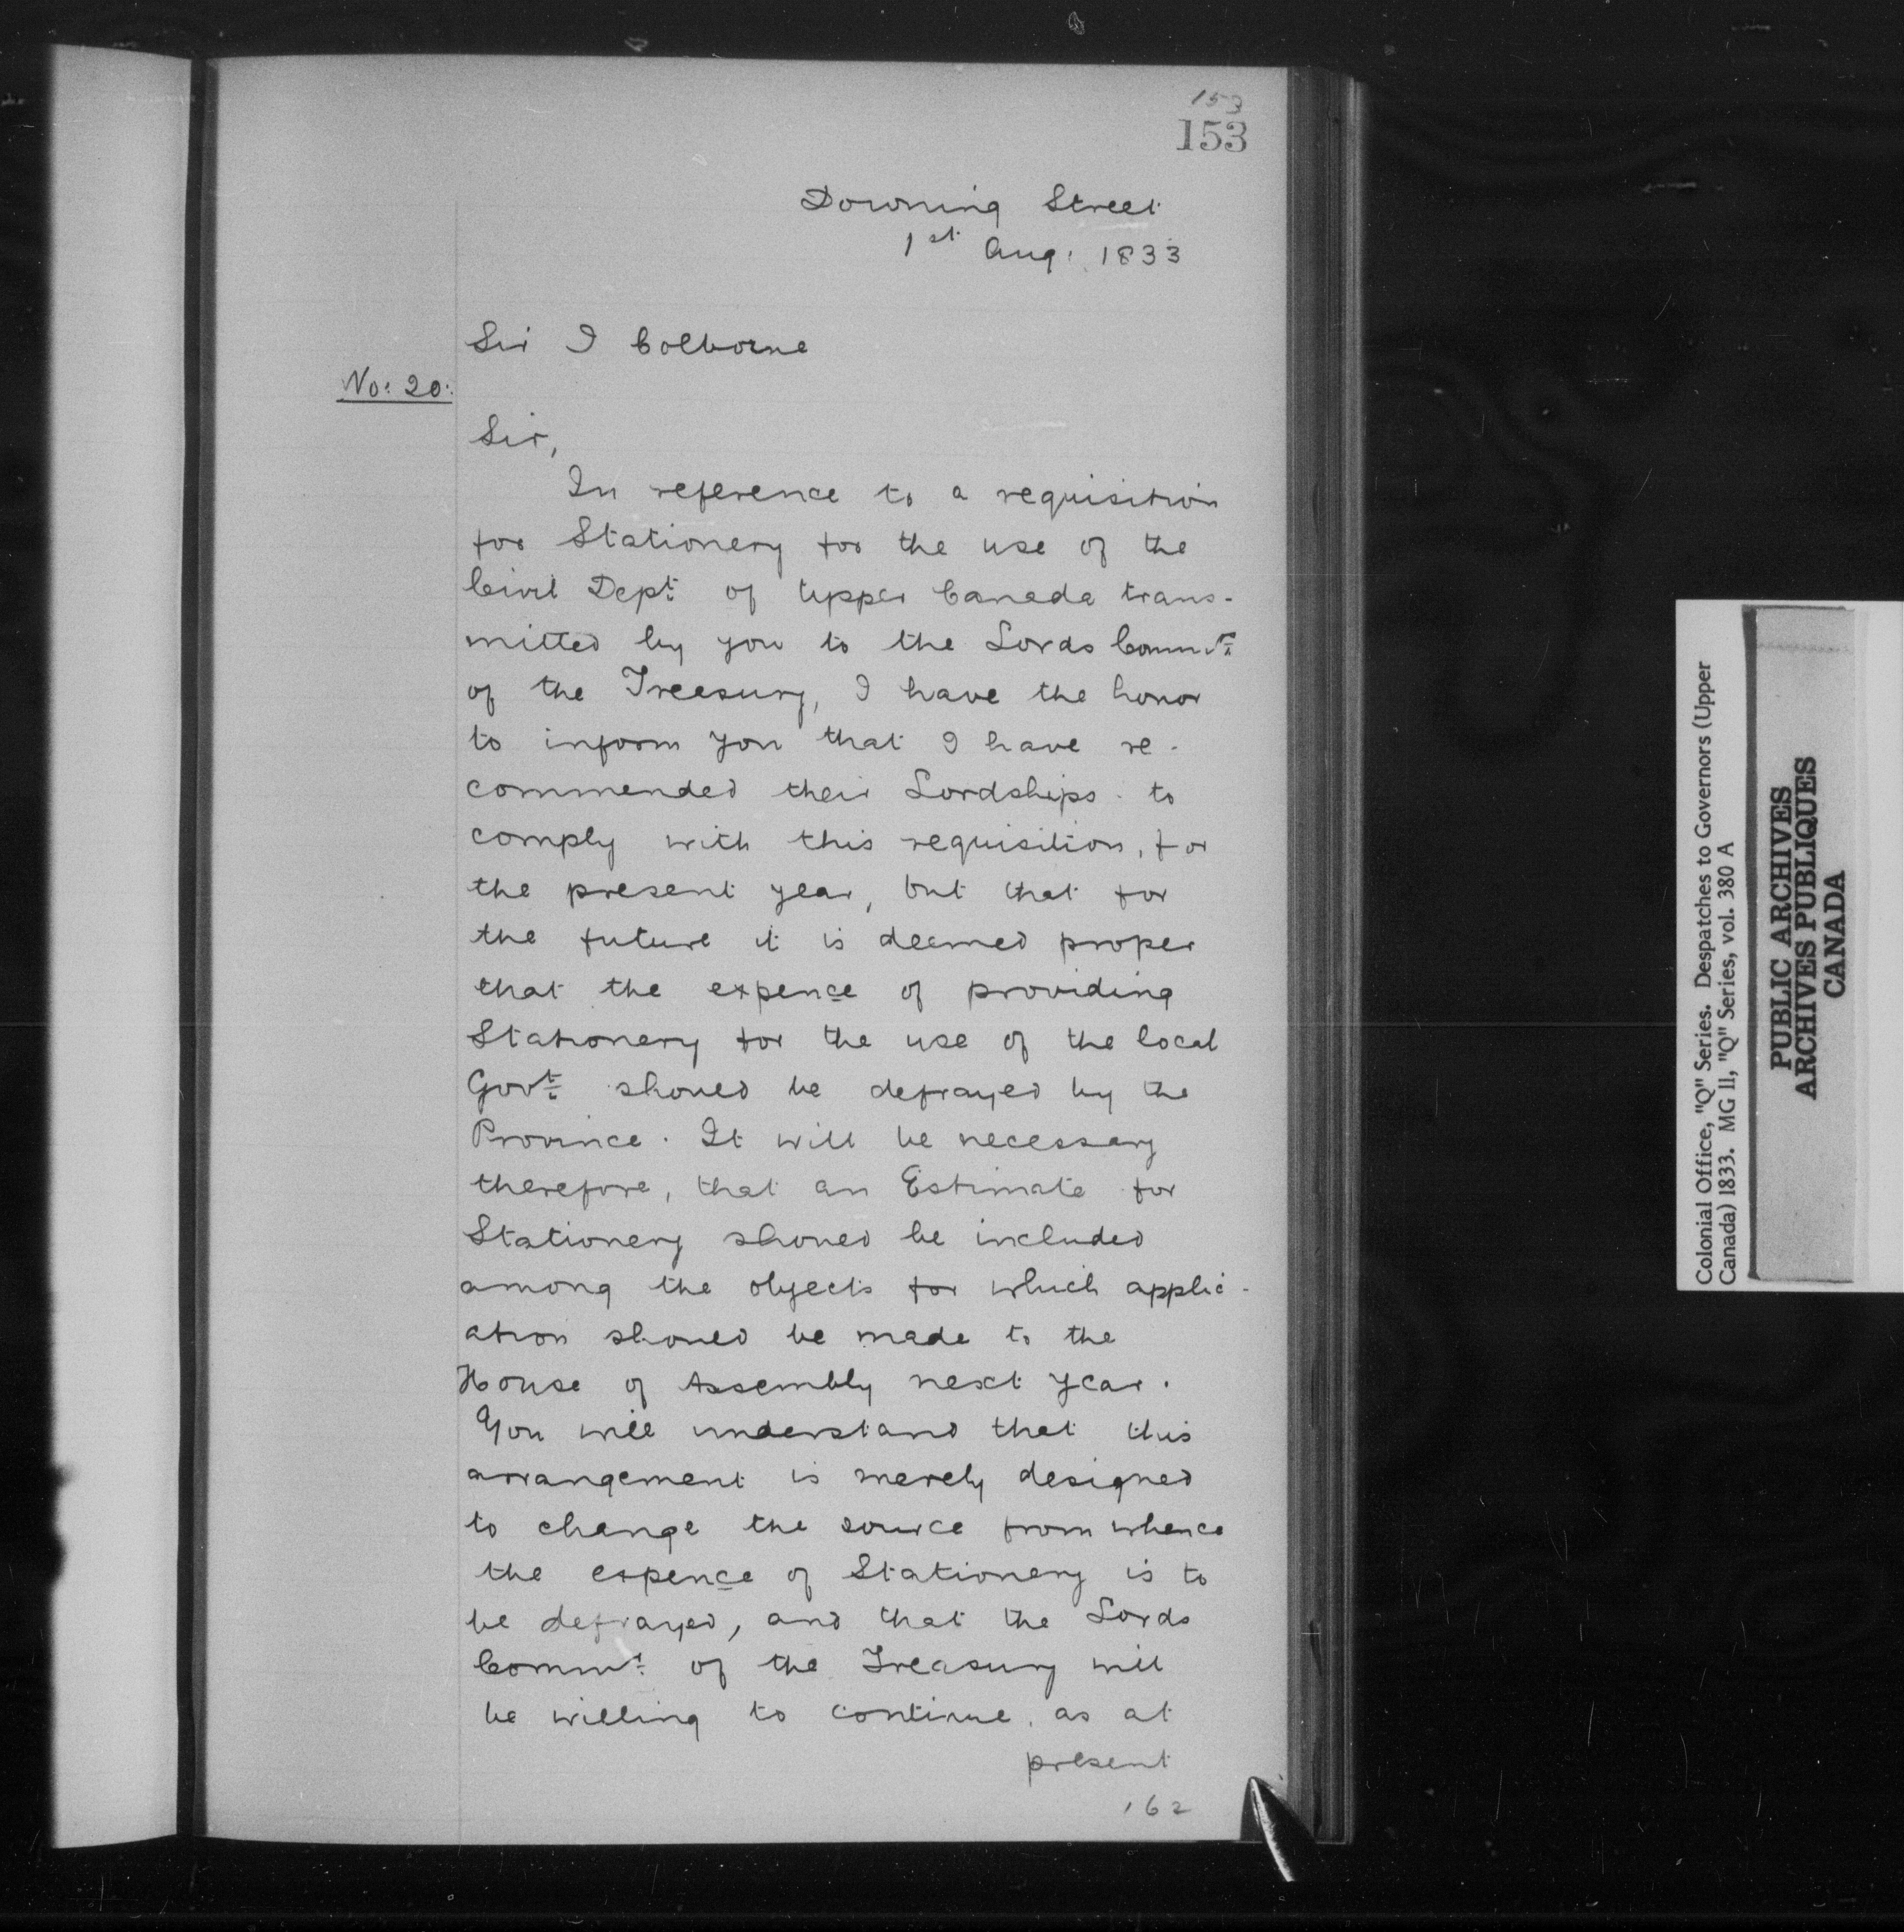 153
153
Downing Street
1st Aug: 1833
Sir J Colborne
No: 20:
Sir,
In reference to a requisition
for Stationery for the use of the
Civil Dept: of Upper Canada trans-
mitted by you to the Lords Commrs:
of the Treasury, I have the honor
to inform you that I have re-
commended their Lordships to
comply with this requisition, for
the present year, but that for
the future it is deemed proper
that the expence of providing
Stationery for the use of the local
Govt: should be defrayed by the
Province. It will be necessary
therefore, that an Estimate for
Stationery should be included
among the objects for which applic-
ation should be made to the
House of Assembly next year.
You will understand that this
arrangement is merely designed
to change the source from whence
the expence of Stationery is to
be defrayed, and that the Lords
Commrs: of the Treasury will
be willing to continue, as at
present
162
Colonial Office, "Q" Series. Despatches to Governors (Upper
Canada) 1833. MG 11, "Q" Series, vol. 380 A
PUBLIC ARCHIVES
ARCHIVES PUBLIQUES
CANADA